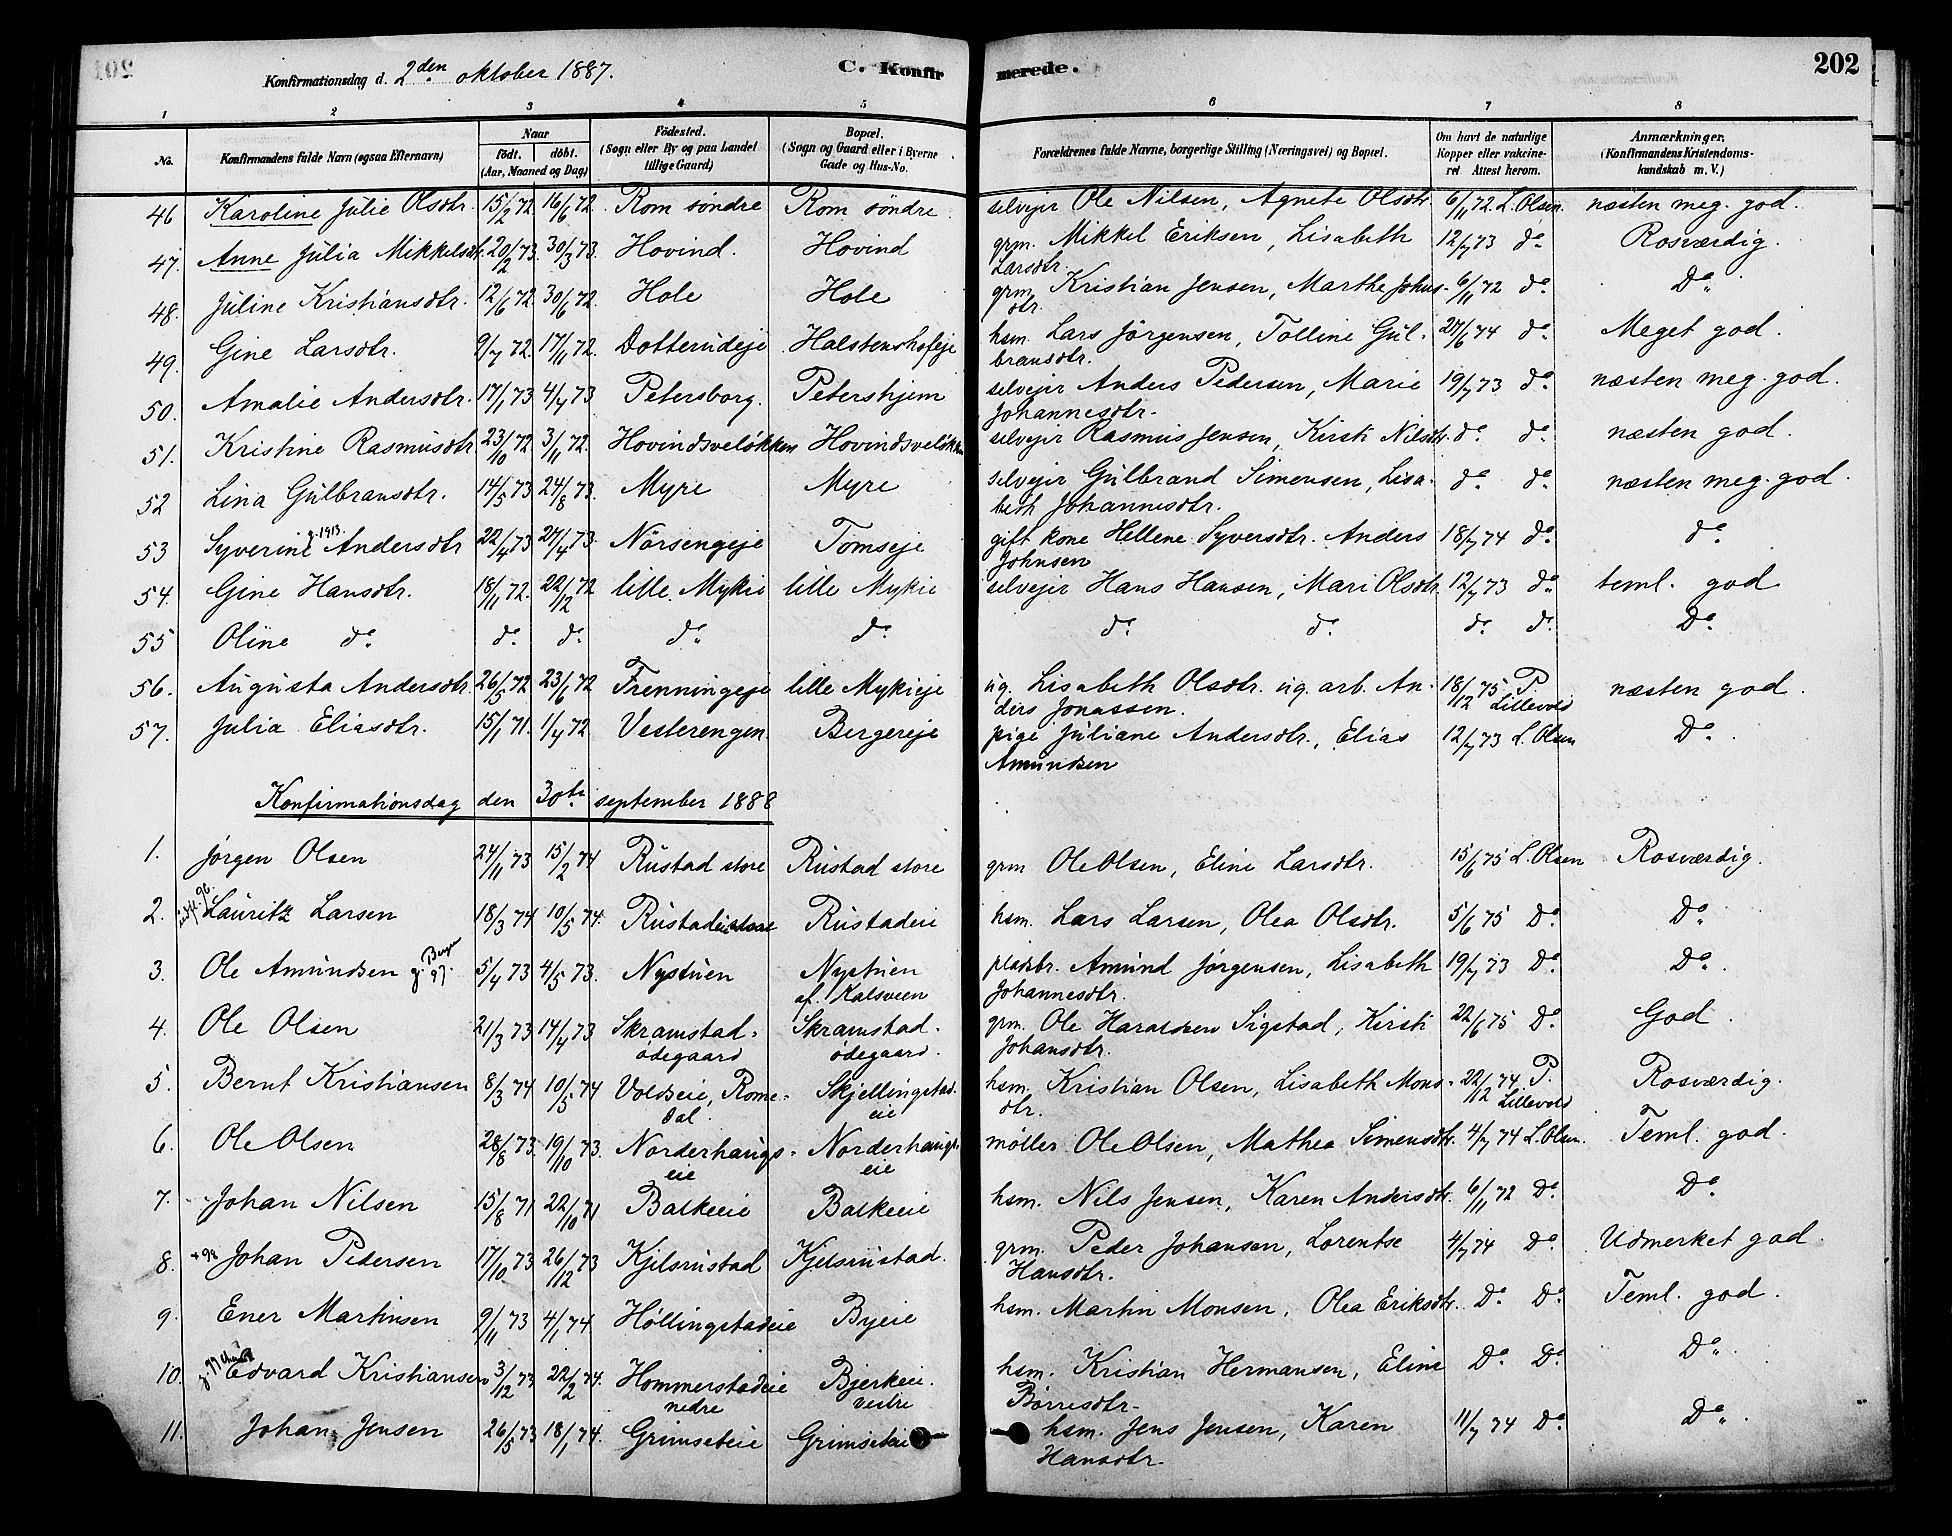 Konfirmationsdag d. 2den oktober 1887.
C. Konfirmerede.
202
1 2 3 4 5 6 7 8
No. Konfirmandens fulde Navn (ogsaa Efternavn) Naar födt. döbt. (Aar, Maaned og Dag) Födested. (Sogn eller By og paa Landet tillige Gaard) Bopæl. (Sogn og Gaard eller i Byerne Gade og Hus-No. Forældrenes fulde Navne, borgerlige Stilling (Næringsvei) og Bopæl. Om havt de naturlige Kopper eller vakcineret Attest herom. Anmærkninger, (Konfirmandens Kristendomskundskab m. V.)
46 Karoline Julie Olsdtr. 15/2 72 16/6 72 Rom söndre Rom söndre selvejer Ole Nilsen, Agnete Olsdtr. 6/11 72 L. Olsen næsten meg. god.
47. Anne Julia Mikkelsdtr. 20/2 73. 30/3 73. Hovind. Hovind grm. Mikkel Eriksen, Lisabeth 12/7 73 do. Rosværdig.
Larsdtr.
48. Juline Kristiansdtr. 12/6 72. 30/6 72. Hole Hole grm. Kristian Jensen, Marthe Johns- 6/11 72 do. Do.
dtr.
49. Gine Larsdtr. 9/7 72. 17/11 72. Dotterudeje Halstenshofeje hsm. Lars Jörgensen, Tolline Gul- 27/6 74 do. Meget god.
bransdtr.
50. Amalie Andersdtr. 17/1 73 4/4 73 Petersborg. Petershjem selvejer Anders Pedersen, Marie 19/7 73 do. næsten meg. god.
Johannesdtr.
51. Kristine Rasmusdtr 23/10 72. 3/11 72. Hovindsveløkken Hovindsveløkken selvejer Rasmus Jensen, Kirsti Nilsdtr. do. do. næsten god.
52 Lina Gulbransdtr. 14/5 73 24/8 73. Myre Myre selvejer Gulbrand Simensen, Lisa- do. do. næsten meg. god.
beth Johannesdtr.
53 Syverine Andersdtr 22/4 73 27/4 73. Nörsengeje Tomseje gift kone Hellene Syversdtr. Anders 18/7 74 do. do.
Johnsen
54. Gine Hansdtr. 18/11 72. 22/12 72 lille Mykie lille Mykie selvejer Hans Hansen, Mari Olsdtr. 12/7 73 do. teml. god
55 Oline do. do. do. do. do. do. do. do. do. Do.
56. Augusta Andersdtr. 26/5 72 23/6 72 Frenningeje lille Mykieje ug. Lisabeth Olsdtr. ug. arb. An- 18/12 75 P. Lillevold næsten god.
ders Jonassen.
57. Julia Eliasdtr. 15/1 71. 1/4 72 Vesterengen. Bergereje pige Juliane Andersdtr., Elias 12/7 73 L. Olsen Do.
Amundsen
Konfirmationsdag den 30te september 1888
1. Jørgen Olsen 24/11 73 15/2 74 Rustad store Rustad store grm Ole Olsen, Eline Larsdtr. 15/6 75 L. Olsen Rosværdig.
2. Lauritz Larsen 18/3 74 10/5 74. Rustadeie Rustadeie hsm. Lars Larsen, Olea Olsdtr. 5/6 75 Do. Do.
3. Ole Amundsen g. 97. 5/4 73 4/5 73. Nystuen Nystuen af. Kalsveen pladsbr. Amund Jørgensen, Lisabeth 19/7 73 Do. Do.
Johannesdtr.
4. Ole Olsen 21/3 73 14/4 73 Skramstad- ödegaard Skramstad- ödegaard. grm. Ole Haraldsen Sigstad, Kirsti 22/6 75 Do. God.
Johansdtr.
5. Bernt Kristiansen 8/3 74 10/5 74 Voldseie, Rome- dal. Skjellingstad- eie hsm. Kristian Olsen, Lisabeth Mons- 22/12 74 P. Lillevold Rosværdig.
dtr.
6. Ole Olsen 28/8 73. 19/10 73. Norderhaugs- eie Norderhaugs- eie møller Ole Olsen, Mathea Simensdtr. 4/7 74 L. Olsen. Teml. god.
7. Johan Nilsen 15/8 71 22/10 71 Balkeeie Balkeeie hsm. Nils Jensen, Karen Andersdtr. 6/11 72 Do. Do.
8. +98 Johan Pedersen 17/10 73 26/12 73 Kjelsrustad Kjelsrustad. grm. Peder Johansen, Lorentse 4/7 74 Do. Udmerket god.
Hansdtr.
9. Ener Martinsen 9/11 73 4/1 74. Høllingstadeie Byeie hsm. Martin Monsen, Olea Eriksdtr. Do. Do. Teml. god.
10. Edvard Kristiansen 3/12 73 22/2 74. Hommerstadeie nedre Bjerkeie. vestre hsm. Kristian Hermansen, Eline Do. Do. Do.
Börresdtr.
11. Johan Jensen 26/5 73 18/1 74. Grimseteie Grimseteie hsm. Jens Jensen, Karen 11/7 74 Do. Do.
Hansdtr.